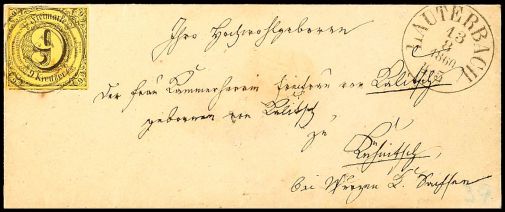 Freimarke
9
9 Kreuzer
LAUTERBACH
13
1860
Ihro Hochwohlgeboren
Der Frau Kammerherrin Freifrau von Kalitsch
geborenen von Kalitsch
zu
bei Wurzen K. Sachsen